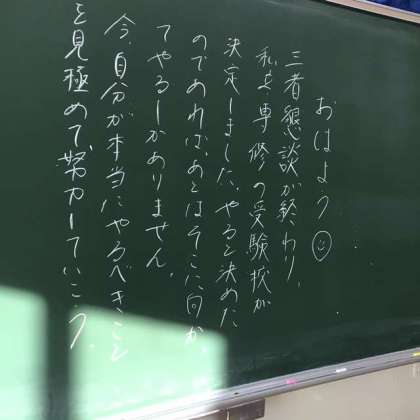 おはよう
三者懇談が終わり、
私立・専修の受験校が
決定しました。やると決めた
のであれば、あとはそこに向かっ
てやるしかありません。
今、自分が本当にやるべきこと
を見極めて、努力していこう。